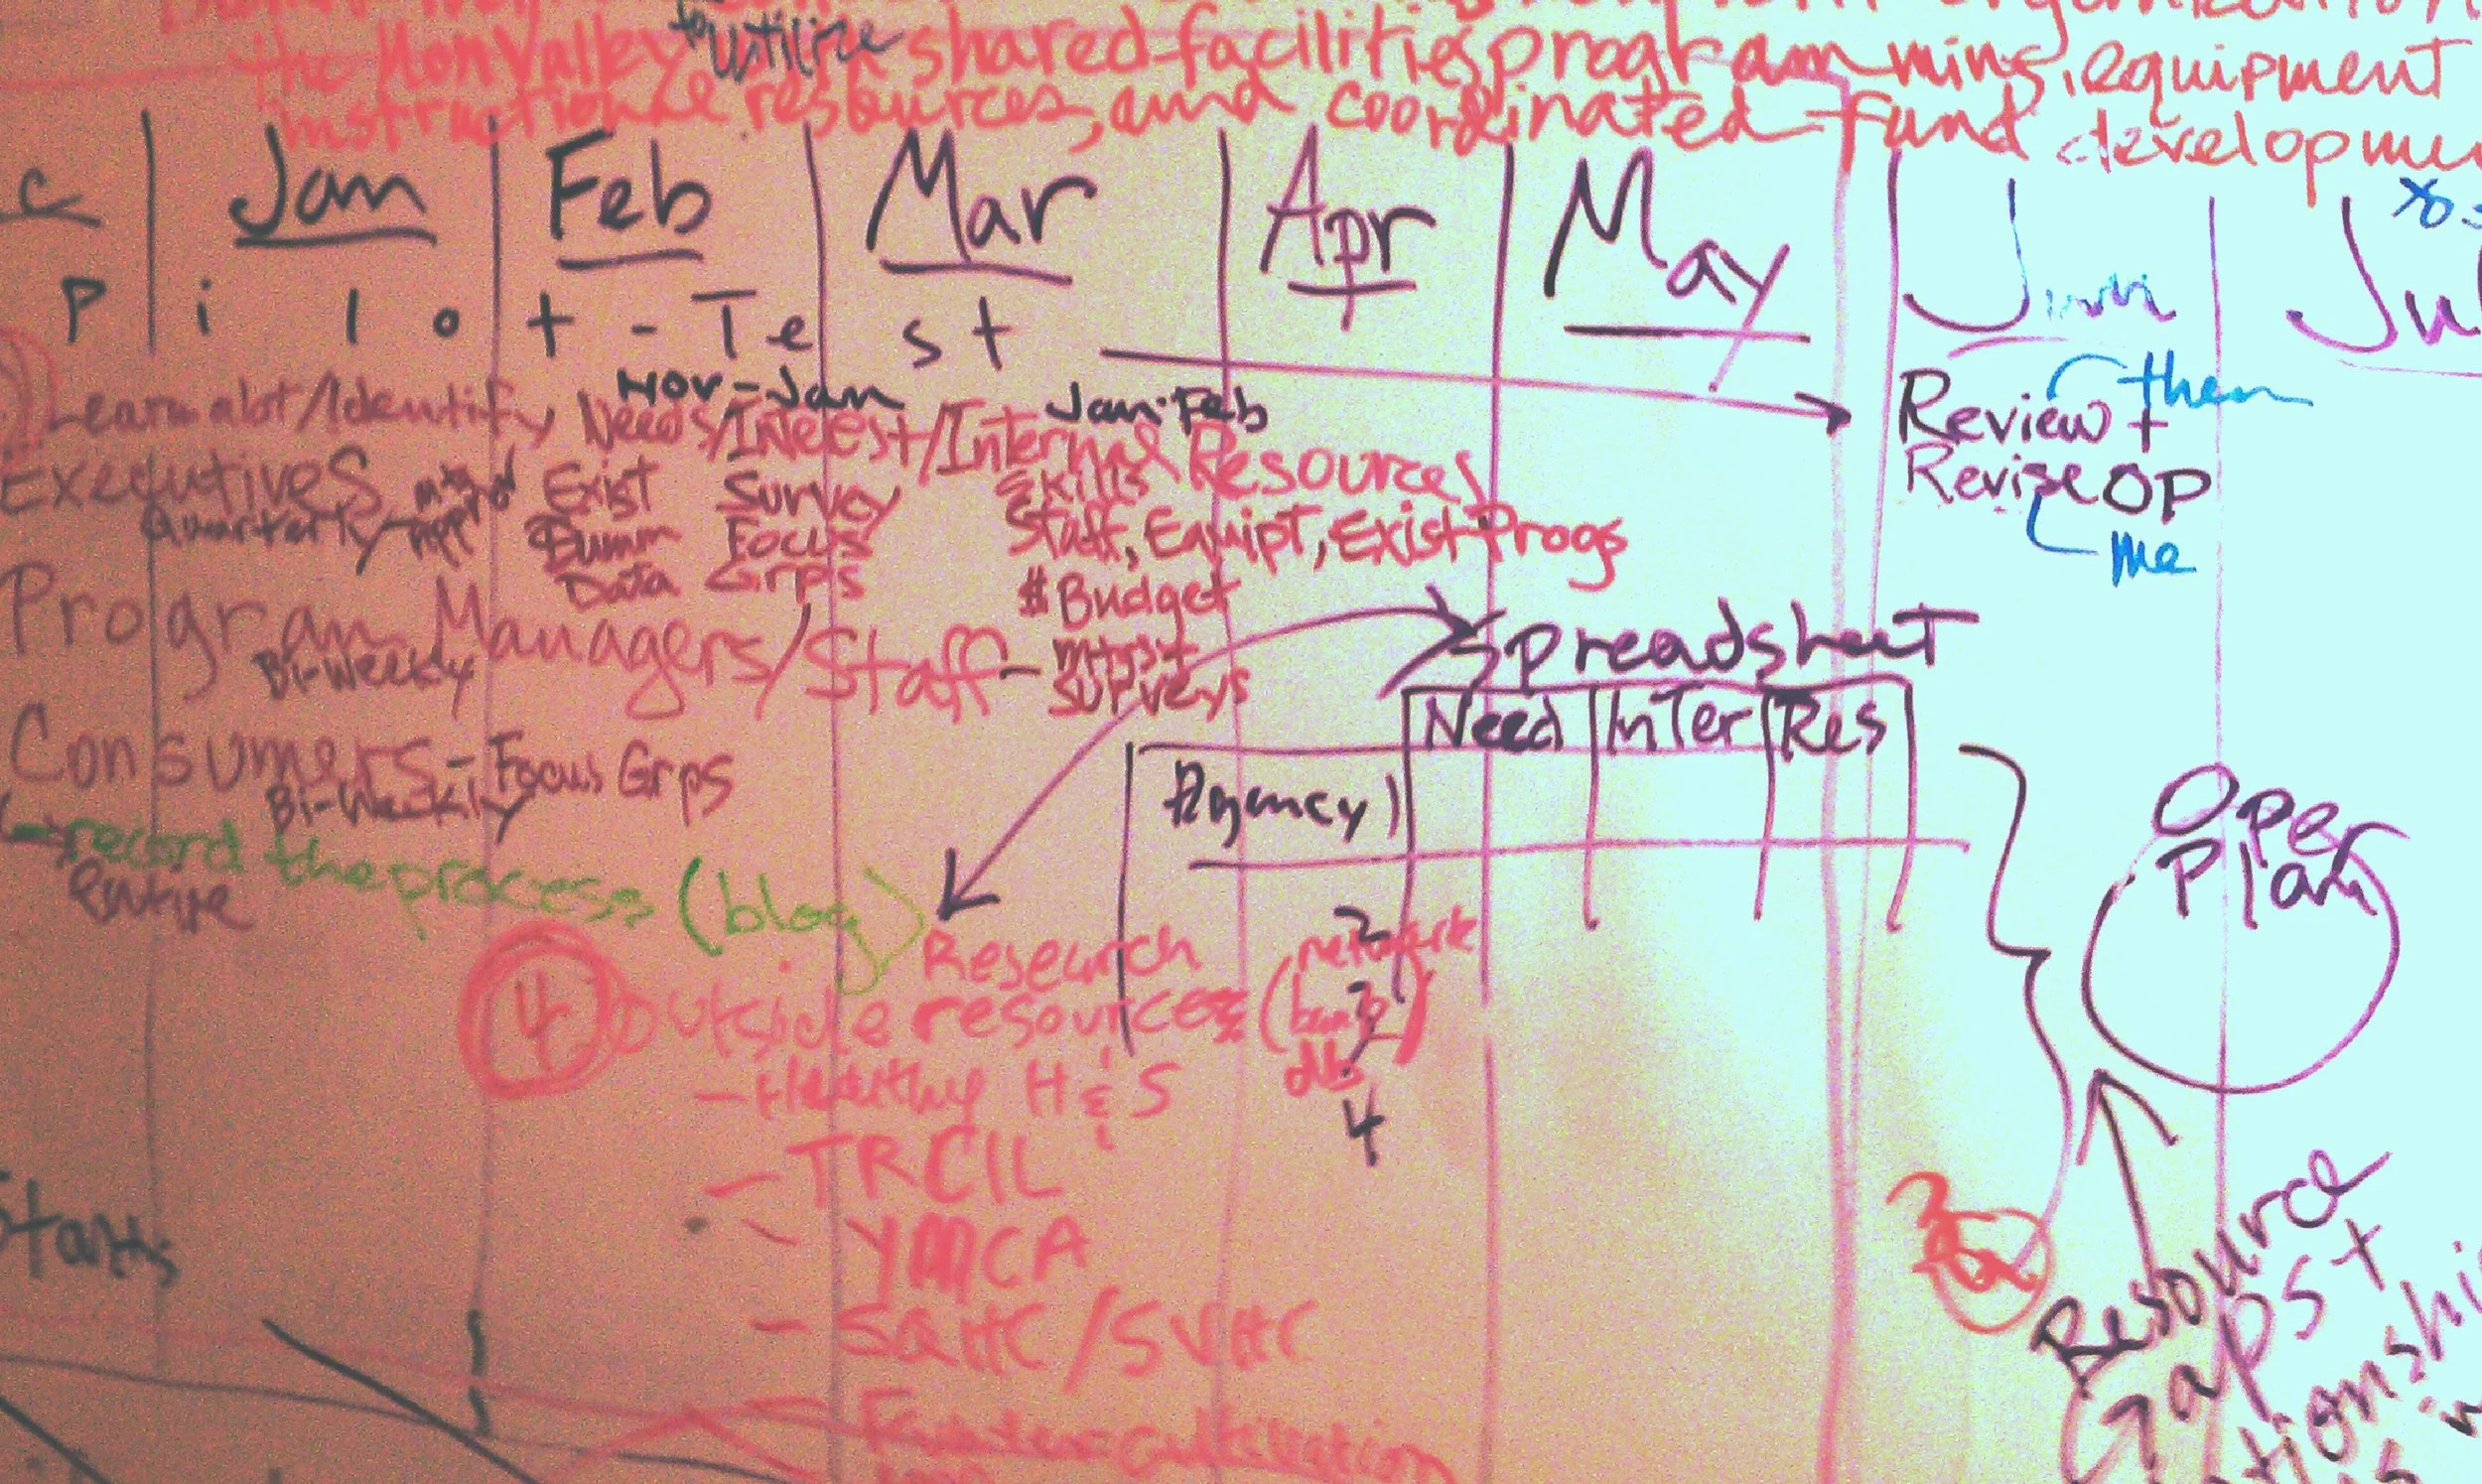 the Mon Valley to utilize shared facilities, programming, equipment
instructional resources, and coordinated fund development
c Jan Feb Mar Apr May Jun Jul
P i l o t - T e s t
Nov-Jan Jan-Feb
Learn alot/Identify Needs/Interest/Internal Resources
Executives
Quarterly
Exist
Data
Survey
Focus
Grps
Skills
Staff, Equipt, Exist Progs
$ Budget
Program Managers/Staff - mtgs +
surveys
Bi-Weekly
Consumers - Focus Grps
Bi-Weekly
record the process (blog)
entire
them
Review +
Revise OP
me
Spreadsheet
Need Inter Res
Agency 1
2
3
4
Oper
Plan
Research
4 Outside resources (network
db)
- Healthy H & S
- TRCIL
- YMCA
- SQHC / SVHC
Resource
Gaps +
Starts